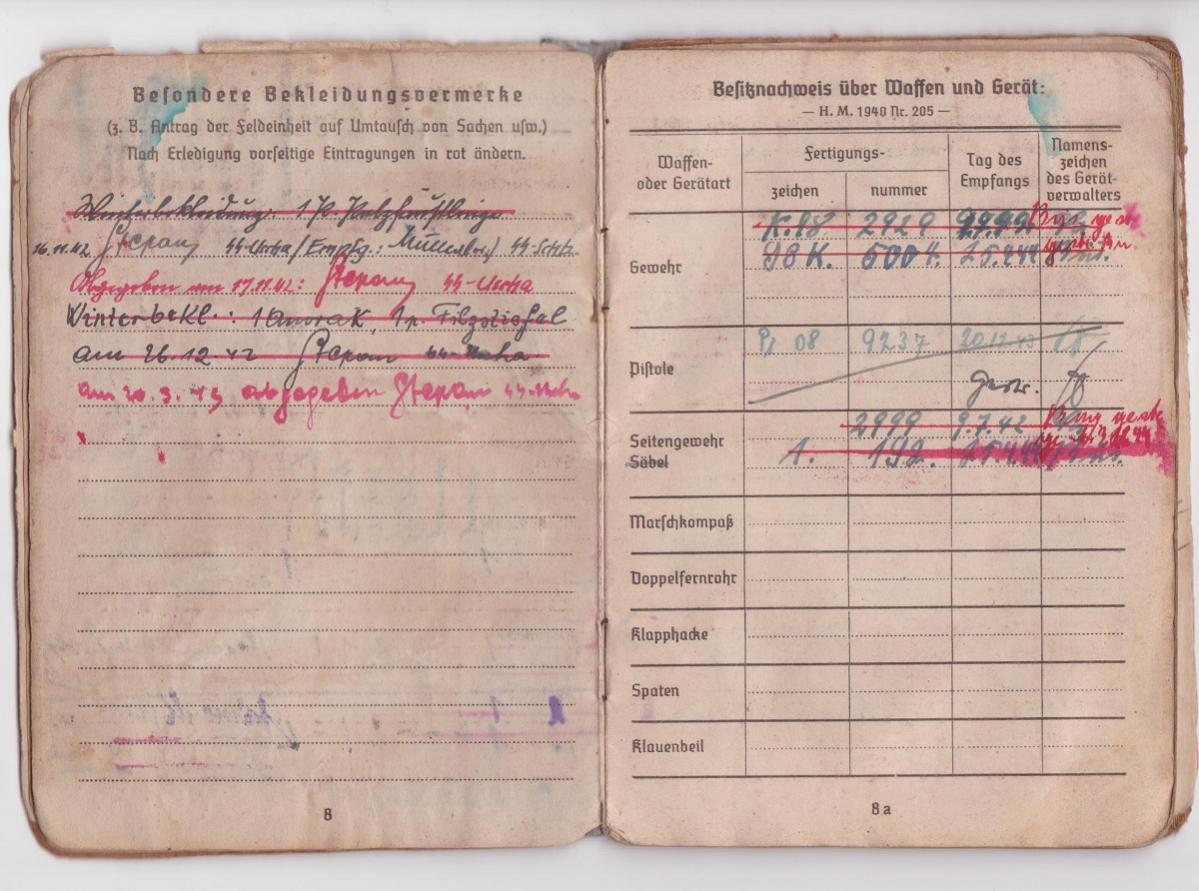 Besondere Bekleidungsvermerke
(z. B. Antrag der Feldeinheit auf Umtausch von Sachen usw.)
Nach Erledigung vorseitige Eintragungen in rot ändern.
Winterbekleidung: 1 P.
16.11.42 SS-Uscha / Empfg.: SS-Schtz.
Abgegeben am 17.11.42: SS-Uscha
Winterbekl.: 1 Anorak, 1 p. Filzstiefel
am 26.12.42 SS-Uscha
am 20.3.43 abgegeben SS-Uscha
8
Besitznachweis über Waffen und Gerät:
— H. M. 1940 Nr. 205 —
Waffen- oder Gerätart
Fertigungs-
zeichen
nummer
Tag des Empfangs
Namens-zeichen des Gerät-verwalters
Gewehr
K.98 2929
98K.
Pistole
P. 08 9237 20.12.43
Seitengewehr
Säbel
2999 9.7.42
1. 192.
Marschkompaß
Doppelfernrohr
Klapphacke
Spaten
Klauenbeil
8a